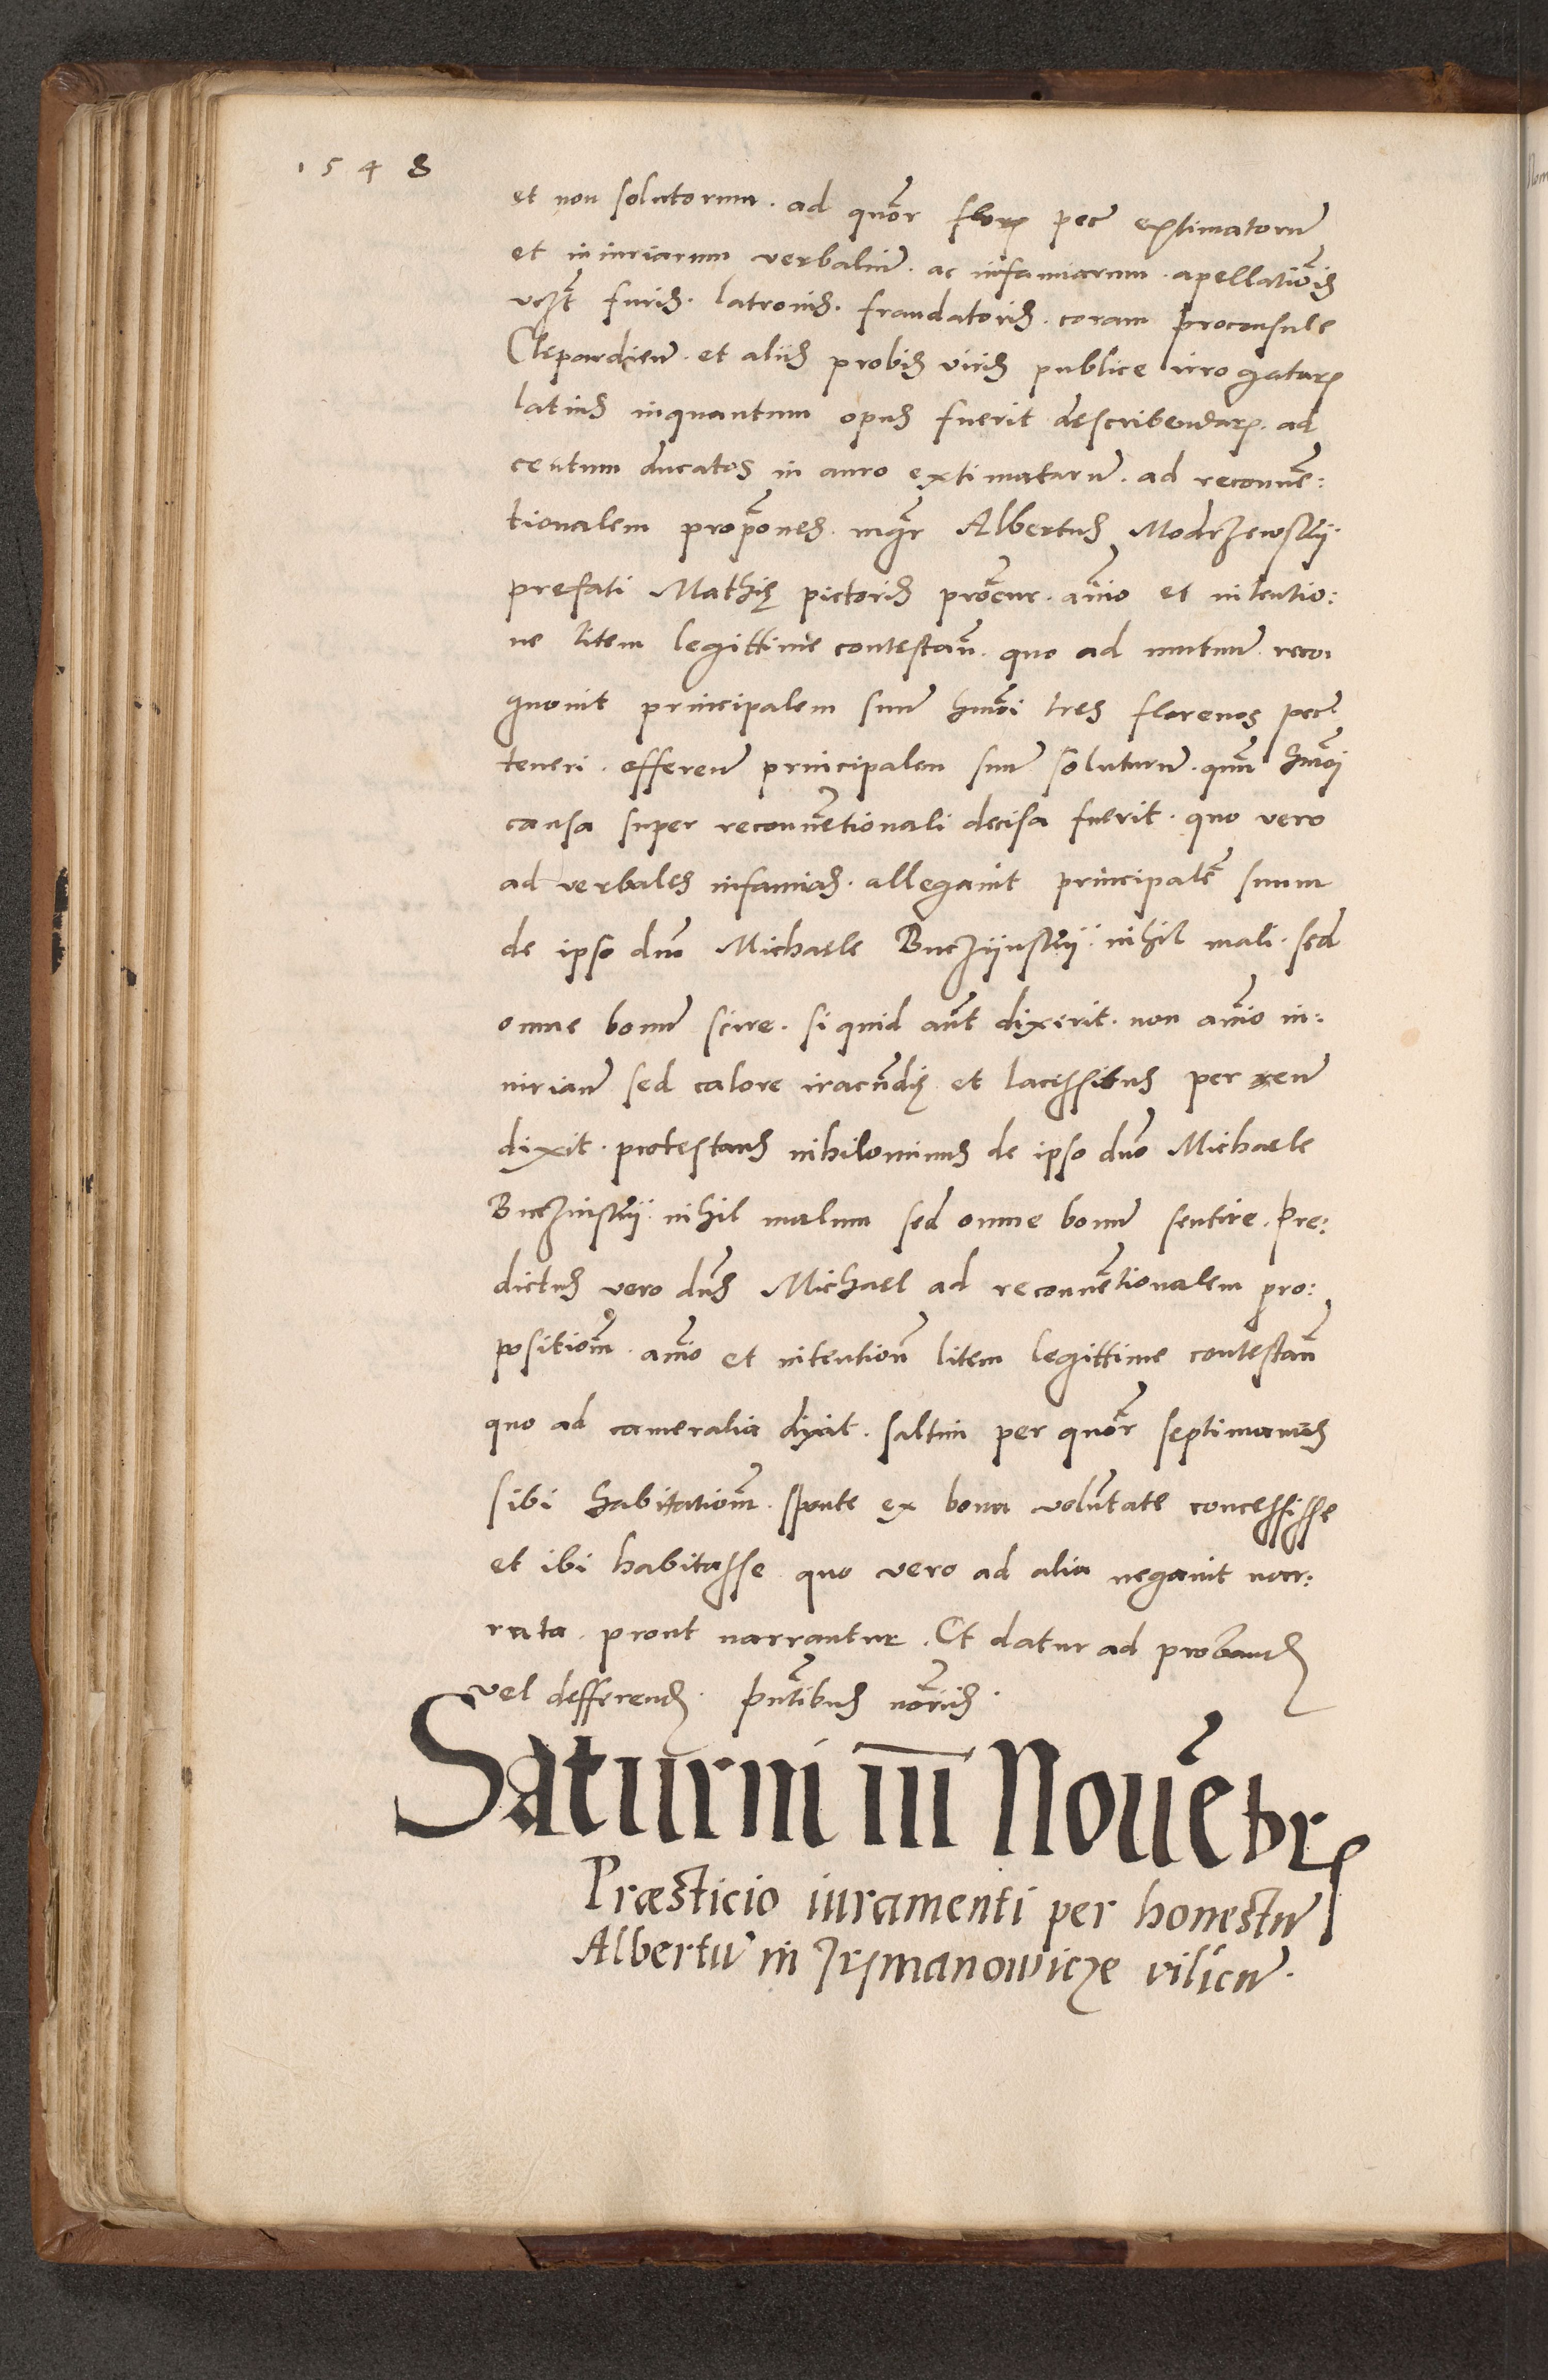 1548
et non solutorum. ad quōr florꝝ pec̄ extimatorū
et iniuriarum verbaliū. ac infamiarum. apellatiōis
vꝫt furis. latronis. fraudatoris. coram proconsule
Clepardien̄. et aliis probis viris publice irrogatarꝝ
latius inquantum opus fuerit describendarꝝ. ad
centum ducatos in auro extimatarū. ad reconuē:
tionalem propōnes. mgr̄ Albertus Modrzewskij.
prefati Mathię pictoris prōcur. aīo et intentio:
ne litem legittime contestan̄. quo ad mutuū. reco:
gnouit principalem suū hmōi tres florenos pec̄
teneri. offeren̄ principalem suū soluturū. quū hmōi
causa super reconuētionali decisa fuerit. quo vero
ad verbales infamias. allegauit principalē suum
de ipso dnō Michaele Buczijnskij. nihil mali. sed
omne bonū scire. si quid aūt dixerit. non aīo in:
iurian̄ sed calore iracūdię et lacessitus per eū
dixit. protestans nihilominus de ipso dnō Michaele
Buczinskij. nihil malum sed omne bonū sentire. Pre:
dictus vero dn̄s Michael ad reconuētionalem pro:
positiom̄. aīo et intention̄ litem legittime contestan̄
quo ad cameralia dixit. saltim per quōr septimanas
sibi habitatiom̄. sponte ex bona volūtate concessisse
et ibi habitasse quo vero ad alia negauit nar:
rata. prout narrantur. Et datur ad proband
vel defferend. pn̄tibus nōriis.
Saturni III Nouēbrꝭ
Præsticio iuramenti per honestū
Albertū in Irzmanowicze vilicū.